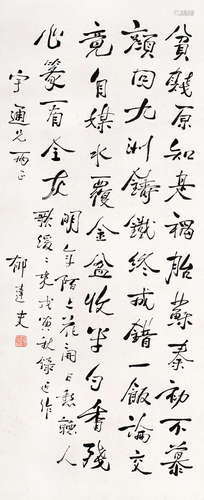 貧賤原知是禍胎蘇秦初不慕
顏回九洲鑄鐵終成錯一飯論交
竟自媒水覆金盆收半勺香殘
心篆看全灰
明年陌上花開日愁聽人
歌緩〻來戊寅秋錄近作
宇通兄兩正
郁達夫